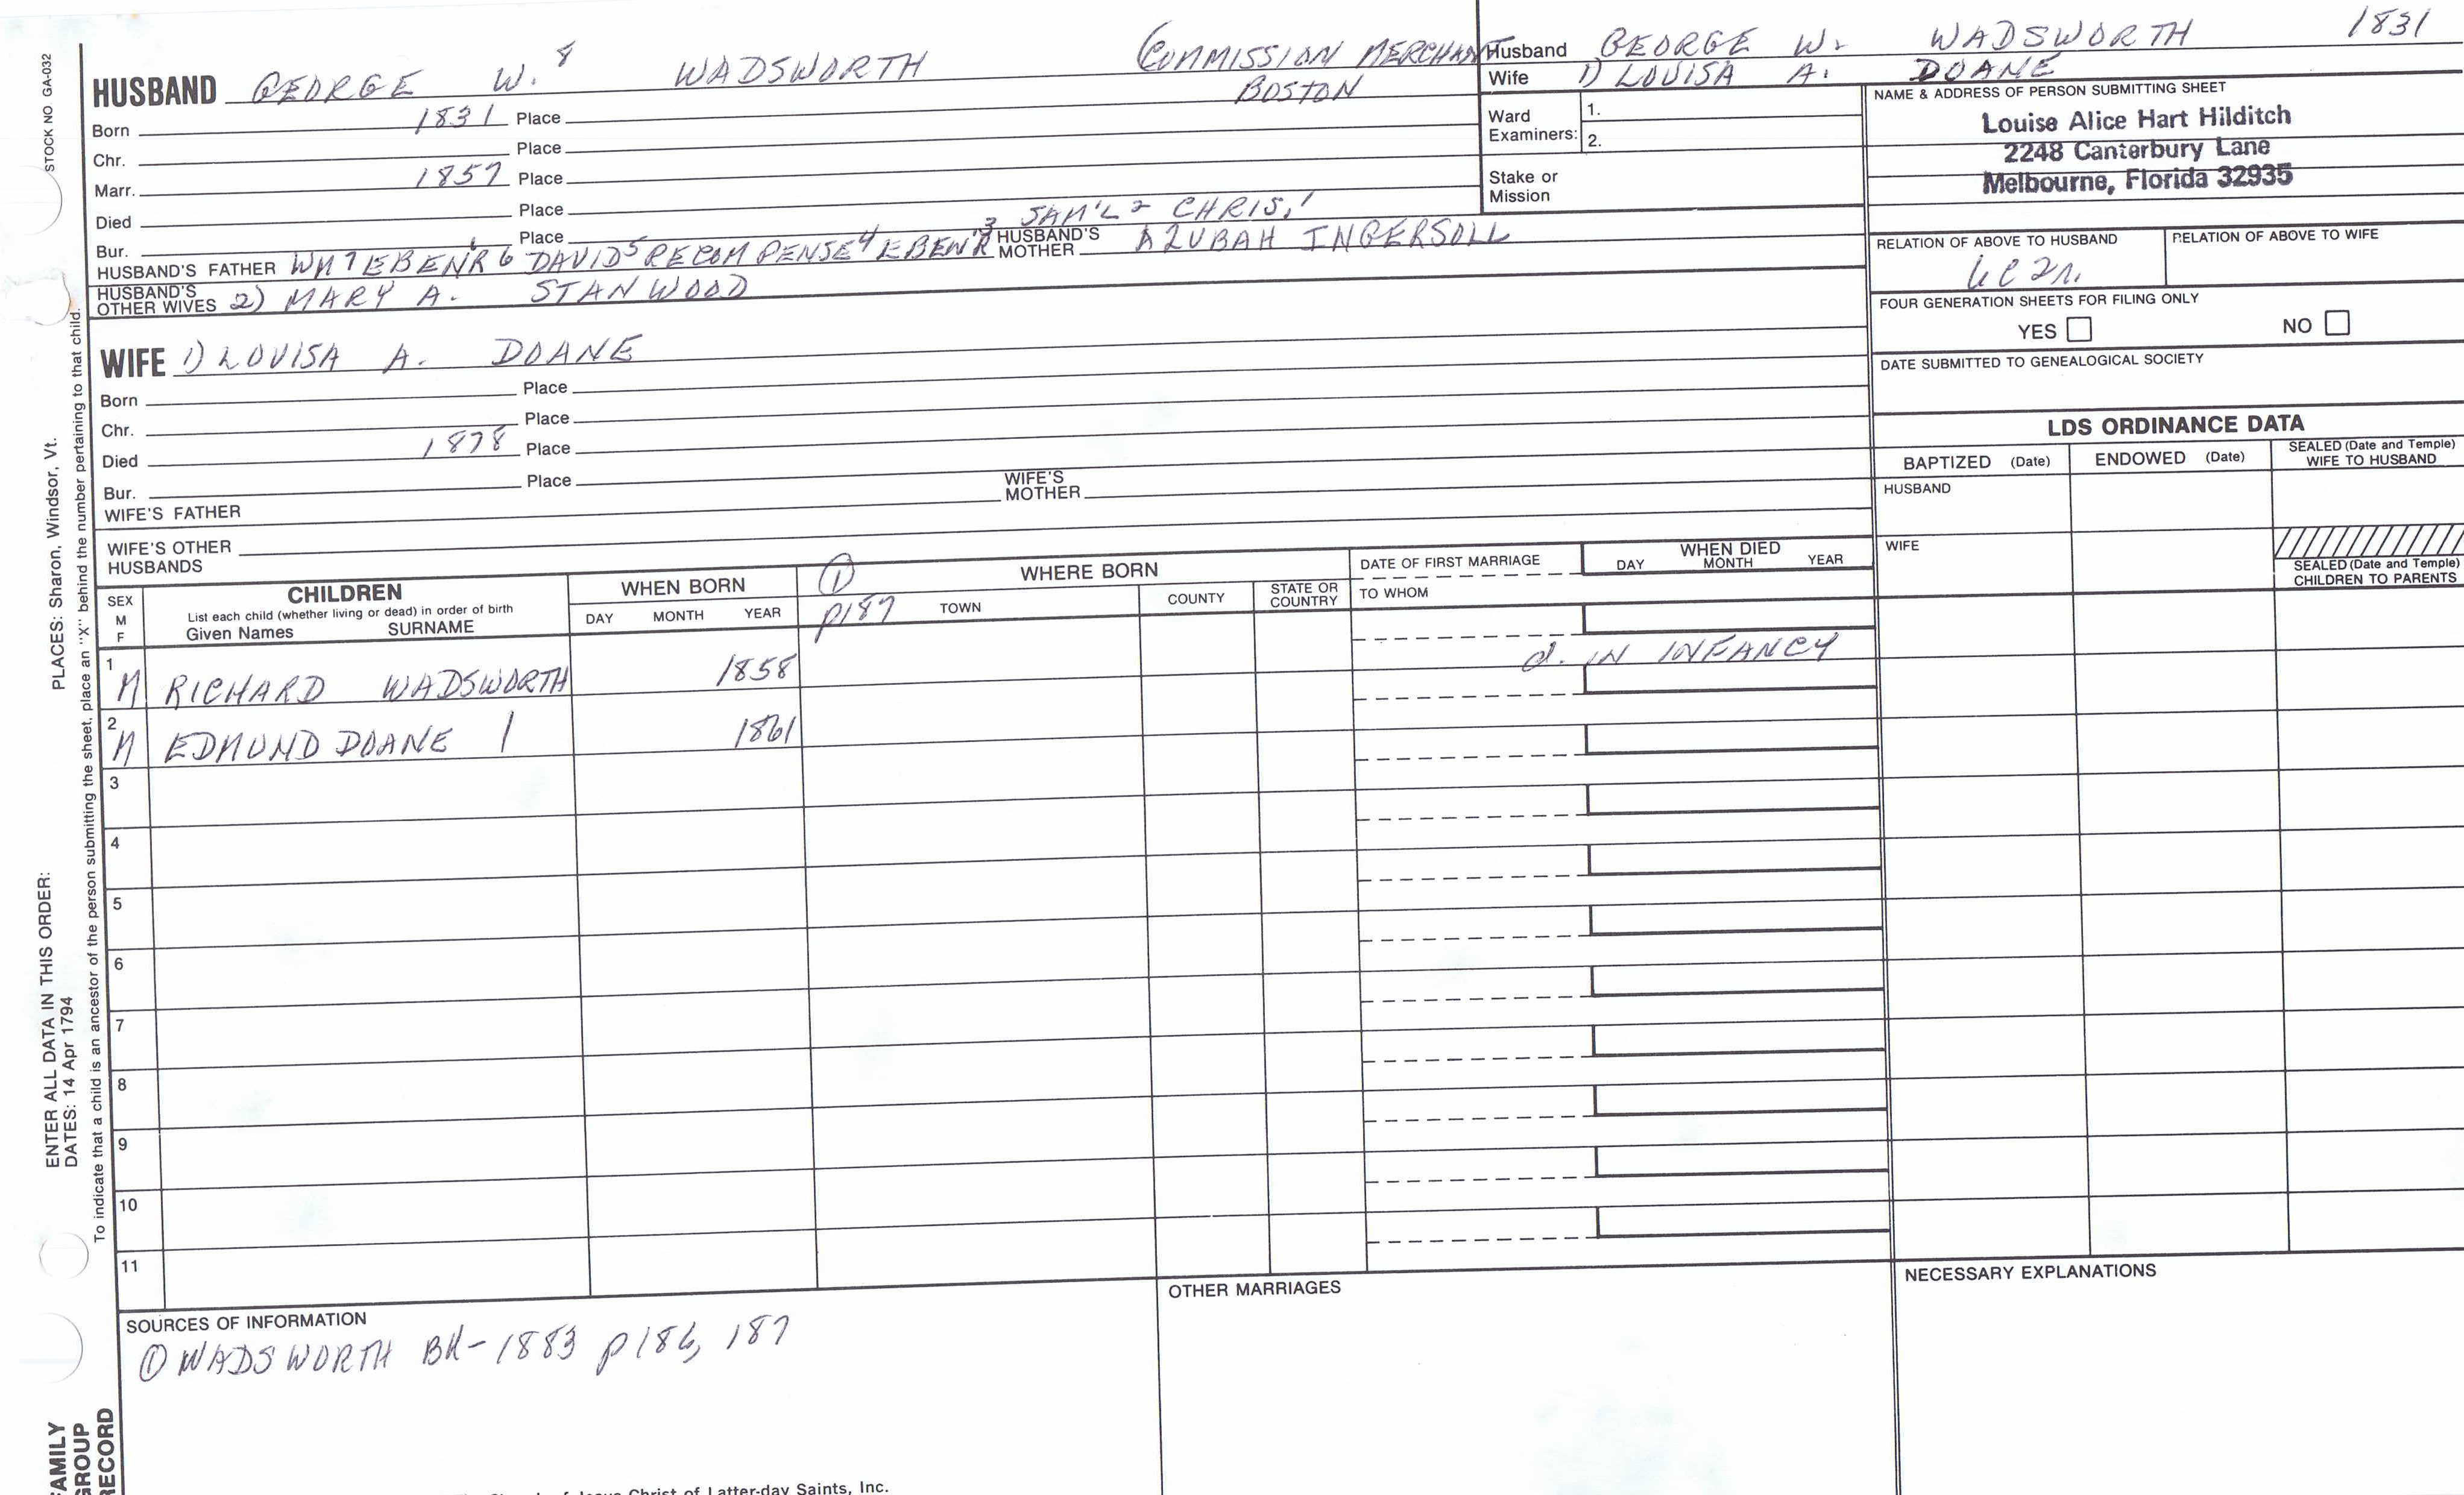 STOCK NO GA-032
HUSBAND GEORGE W. 8 WADSWORTH COMMISSION MERCHANT
BOSTON
Born 1831 Place
Chr. Place
Marr. 1857 Place
Died Place
Bur. Place
3 SAM'L 2 CHRIS. 1
HUSBAND'S FATHER WM 7 EBENR 6 DAVID 5 RECOMPENSE 4 EBEN'R HUSBAND'S MOTHER AZUBAH INGERSOLL
HUSBAND'S OTHER WIVES 2) MARY A. STANWOOD
WIFE 1) LOUISA A. DOANE
Born Place
Chr. Place
Died 1878 Place
Bur. Place
WIFE'S FATHER WIFE'S MOTHER
WIFE'S OTHER HUSBANDS
Husband GEORGE W. WADSWORTH 1831
Wife 1) LOUISA A. DOANE
Ward Examiners: 1.
2.
Stake or Mission
NAME & ADDRESS OF PERSON SUBMITTING SHEET
Louise Alice Hart Hilditch
2248 Canterbury Lane
Melbourne, Florida 32935
RELATION OF ABOVE TO HUSBAND RELATION OF ABOVE TO WIFE
FOUR GENERATION SHEETS FOR FILING ONLY
YES NO
DATE SUBMITTED TO GENEALOGICAL SOCIETY
LDS ORDINANCE DATA
BAPTIZED (Date) ENDOWED (Date) SEALED (Date and Temple) WIFE TO HUSBAND
HUSBAND
WIFE
SEALED (Date and Temple) CHILDREN TO PARENTS
SEX M F
CHILDREN
List each child (whether living or dead) in order of birth
Given Names SURNAME
WHEN BORN
DAY MONTH YEAR
1
p187
WHERE BORN
TOWN COUNTY STATE OR COUNTRY
DATE OF FIRST MARRIAGE
TO WHOM
WHEN DIED
DAY MONTH YEAR
1 M RICHARD WADSWORTH 1858 d. IN INFANCY
2 M EDMUND DOANE 1861
3
4
5
6
7
8
9
10
11
SOURCES OF INFORMATION
1 WADSWORTH BK-1883 p186, 187
OTHER MARRIAGES
NECESSARY EXPLANATIONS
PLACES: Sharon, Windsor, Vt.
ENTER ALL DATA IN THIS ORDER:
DATES: 14 Apr 1794
To indicate that a child is an ancestor of the person submitting the sheet, place an "X" behind the number pertaining to that child.
FAMILY
GROUP
RECORD
Jesus Christ of Latter-day Saints, Inc.